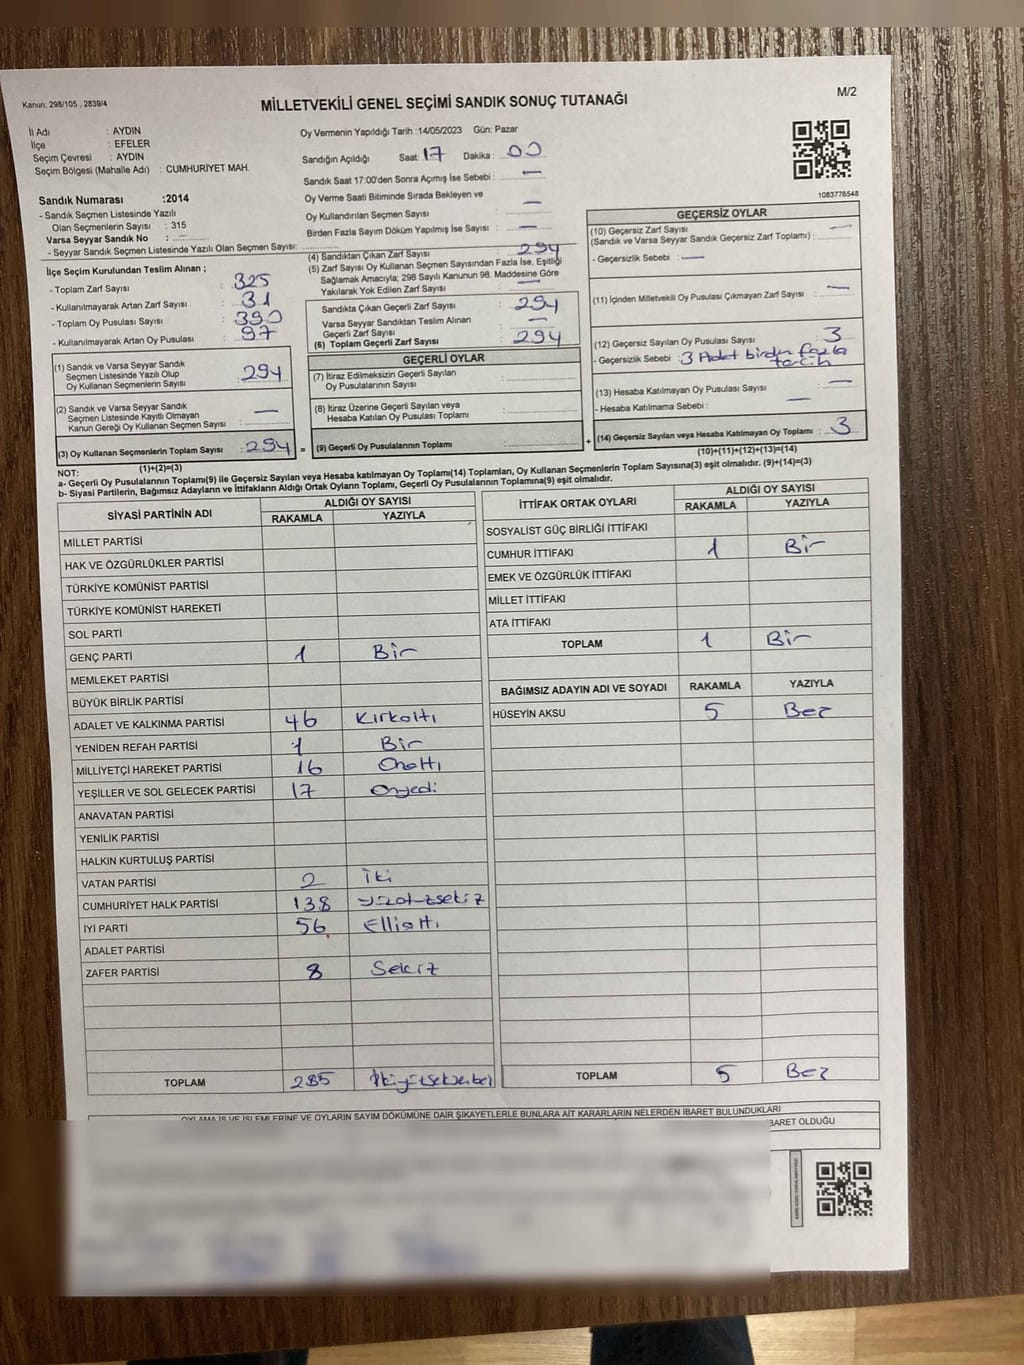 Kanun: 298/105 , 2839/4
MİLLETVEKİLİ GENEL SEÇİMİ SANDIK SONUÇ TUTANAĞI
M/2
İl Adı : AYDIN
İlçe : EFELER
Seçim Çevresi : AYDIN
Seçim Bölgesi (Mahalle Adı) : CUMHURİYET MAH.
Oy Vermenin Yapıldığı Tarih :14/05/2023 Gün: Pazar
Sandığın Açıldığı Saat: 17 Dakika : 00
Sandık Saat 17:00'den Sonra Açımış İse Sebebi : —
Oy Verme Saati Bitiminde Sırada Bekleyen ve
Oy Kullandırılan Seçmen Sayısı : —
Birden Fazla Sayım Döküm Yapılmış İse Sayısı : —
1083776548
Sandık Numarası :2014
- Sandık Seçmen Listesinde Yazılı
Olan Seçmenlerin Sayısı : 315
Varsa Seyyar Sandık No : —
- Seyyar Seçmen Listesinde Yazılı Olan Seçmen Sayısı:
İlçe Seçim Kurulundan Teslim Alınan ;
- Toplam Zarf Sayısı : 325
- Kullanılmayarak Artan Zarf Sayısı : 31
- Toplam Oy Pusulası Sayısı : 390
- Kullanılmayarak Artan Oy Pusulası : 97
(1) Sandık ve Varsa Seyyar Sandık
Seçmen Listesinde Yazılı Olup
Oy Kullanan Seçmenlerin Sayısı : 294
(2) Sandık ve Varsa Seyyar Sandık
Seçmen Listesinde Kayıtlı Olmayan
Kanun Gereği Oy Kullanan Seçmen Sayısı : —
(3) Oy Kullanan Seçmenlerin Toplam Sayısı : 294 =
(1)+(2)=(3)
(4) Sandıktan Çıkan Zarf Sayısı : 294
(5) Zarf Sayısı Oy Kullanan Seçmen Sayısından Fazla İse, Eşitliği
Sağlamak Amacıyla; 298 Sayılı Kanunun 98. Maddesine Göre
Yakılarak Yok Edilen Zarf Sayısı : —
Sandıkta Çıkan Geçerli Zarf Sayısı : 294
Varsa Seyyar Sandıktan Teslim Alınan
Geçerli Zarf Sayısı : —
(6) Toplam Geçerli Zarf Sayısı : 294
GEÇERLİ OYLAR
(7) İtiraz Edilmeksizin Geçerli Sayılan
Oy Pusulalarının Sayısı :
(8) İtiraz Üzerine Geçerli Sayılan veya
Hesaba Katılan Oy Pusulası Toplamı :
(9) Geçerli Oy Pusulalarının Toplamı : +
GEÇERSİZ OYLAR
(10) Geçersiz Zarf Sayısı
(Sandık ve Varsa Seyyar Sandık Geçersiz Zarf Toplamı) : —
- Geçersizlik Sebebi : —
(11) İçinden Milletvekili Oy Pusulası Çıkmayan Zarf Sayısı : —
(12) Geçersiz Sayılan Oy Pusulası Sayısı : 3
- Geçersizlik Sebebi : 3 Adet birden fazla
tercih
(13) Hesaba Katılmayan Oy Pusulası Sayısı : —
- Hesaba Katılmama Sebebi : —
(14) Geçersiz Sayılan veya Hesaba Katılmayan Oy Toplamı : 3
(10)+(11)+(12)+(13)=(14)
NOT:
a- Geçerli Oy Pusulalarının Toplamı(9) ile Geçersiz Sayılan veya Hesaba katılmayan Oy Toplamı(14) Toplamları, Oy Kullanan Seçmenlerin Toplam Sayısına(3) eşit olmalıdır. (9)+(14)=(3)
b- Siyasi Partilerin, Bağımsız Adayların ve İttifakların Aldığı Ortak Oyların Toplamı, Geçerli Oy Pusulalarının Toplamına(9) eşit olmalıdır.
SİYASİ PARTİNİN ADI ALDIĞI OY SAYISI
RAKAMLA YAZIYLA
MİLLET PARTİSİ
HAK VE ÖZGÜRLÜKLER PARTİSİ
TÜRKİYE KOMÜNİST PARTİSİ
TÜRKİYE KOMÜNİST HAREKETİ
SOL PARTİ
GENÇ PARTİ 1 Bir
MEMLEKET PARTİSİ
BÜYÜK BİRLİK PARTİSİ
ADALET VE KALKINMA PARTİSİ 46 Kırkaltı
YENİDEN REFAH PARTİSİ 1 Bir
MİLLİYETÇİ HAREKET PARTİSİ 16 Onaltı
YEŞİLLER VE SOL GELECEK PARTİSİ 17 Onyedi
ANAVATAN PARTİSİ
YENİLİK PARTİSİ
HALKIN KURTULUŞ PARTİSİ
VATAN PARTİSİ 2 İki
CUMHURİYET HALK PARTİSİ 138
İYİ PARTİ 56 Elliatı
ADALET PARTİSİ
ZAFER PARTİSİ 8 Sekiz
TOPLAM 285
İTTİFAK ORTAK OYLARI ALDIĞI OY SAYISI
RAKAMLA YAZIYLA
SOSYALİST GÜÇ BİRLİĞİ İTTİFAKI
CUMHUR İTTİFAKI 1 Bir
EMEK VE ÖZGÜRLÜK İTTİFAKI
MİLLET İTTİFAKI
ATA İTTİFAKI
TOPLAM 1 Bir
BAĞIMSIZ ADAYIN ADI VE SOYADI RAKAMLA YAZIYLA
HÜSEYİN AKSU 5 Beş
TOPLAM 5 Beş
OYLAMA İŞ VE İŞLEMLERİNE VE OYLARIN SAYIM DÖKÜMÜNE DAİR ŞİKAYETLERLE BUNLARA AİT KARARLARIN NELERDEN İBARET BULUNDUKLARI
BARET OLDUĞU